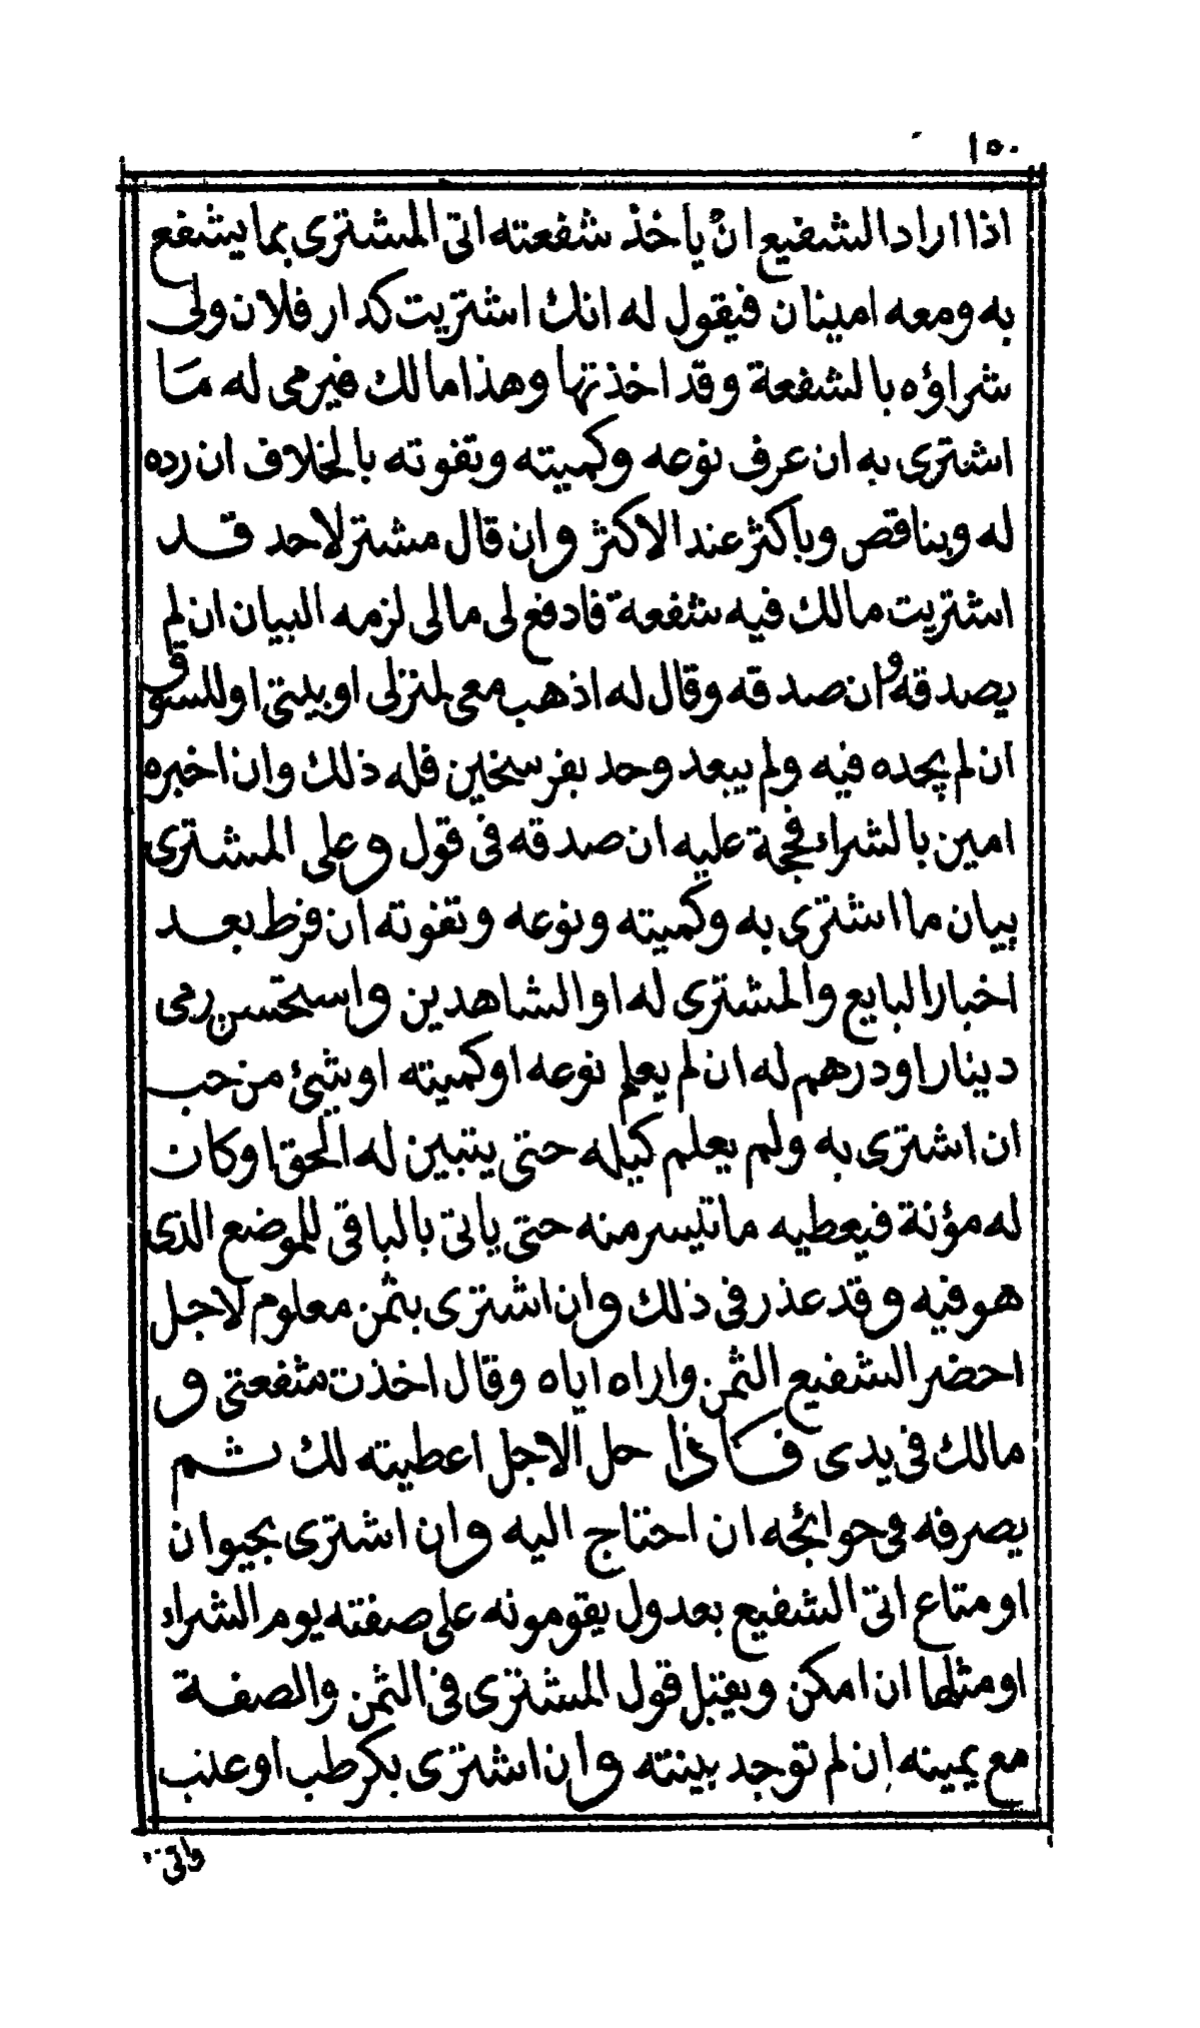 ١٥٠
اذا اراد الشفيع انْ ياخذ شفعته اتى المشترى بما يشفع
به ومعه امينان فيقول له انك اشتريت كدار فلان ولى
شراؤه بالشفعة وقد اخذتها وهذا مالك فيرمى له مَا
اشترى به ان عرف نوعه وكميته وتفوته بالخلاف ان رده
له وبناقص وباكثر عند الاكثر وان قال مشتر لاحد قد
اشتريت مالك فيه شفعة فادفع لى مالى لزمه البيان ان لم
يصدقه وان صدقه وقال له اذهب معى لمنزلى او بيتى او للسوق
ان لم يجده فيه ولم يبعد وحد بفرسخين فله ذلك وان اخبره
امين بالشراء فحجة عليه ان صدقه فى قول وعلى المشترى
بيان ما اشترى به وكميته ونوعه وتفوته ان فرط بعد
اخبار البايع والمشترى له او الشاهدين واستحسن رمى
دينار او درهم له ان لم يعلم نوعه او كميته او شئ من حب
ان اشترى به ولم يعلم كيله حتى يتبين له الحق او كان
له مؤنة فيعطيه ما تيسر منه حتى ياتى بالباقى للموضع الذى
هو فيه وقد عذر فى ذلك وان اشترى بثمن معلوم لاجل
احضر الشفيع الثمن واراه اياه وقال اخذت شفعتى و
مالك فى يدى فاذا حل الاجل اعطيته لك ثم
يصرفه فى حوائجه ان احتاج اليه وان اشترى بحيوان
او متاع اتى الشفيع بعدول يقومونه على صفته يوم الشراء
او مثلها ان امكن ويقبل قول المشترى فى الثمن والصفة
مع يمينه ان لم توجد بينته وان اشترى بكرطب او عنب
واتى